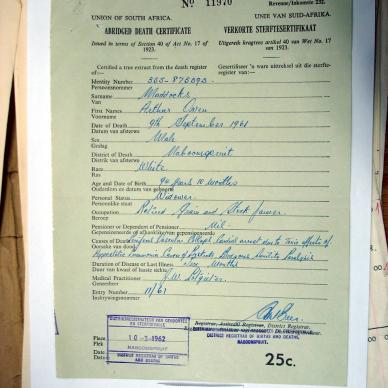 Nº 11970
Revenue/Inkomste 25c.
UNION OF SOUTH AFRICA. UNIE VAN SUID-AFRIKA.
ABRIDGED DEATH CERTIFICATE VERKORTE STERFTESERTIFIKAAT
Issued in terms of Section 40 of Act No. 17 of 1923. Uitgereik kragtens artikel 40 van Wet No. 17 van 1923.
Certified a true extract from the death register of:— Gesertifiseer 'n ware uittreksel uit die sterfteregister van:—
Identity Number
Persoonsnommer
Surname Maddocks
Van
First Names Arthur Owen
Voorname
Date of Death 9th September 1961
Datum van afsterwe
Sex Male
Geslag
District of Death Naboomspruit
Distrik van afsterwe
Race White
Ras
Age and Date of Birth 90 Years 10 Months
Ouderdom en datum van geboorte
Personal Status Widower
Persoonlike staat
Occupation Retired Grain and Stock farmer
Beroep
Pensioner or Dependent of Pensioner Nil
Gepensioeneerde of afhanklike van gepensioeneerde
Causes of Death
Oorsake van dood
Duration of Disease or Last Illness Months
Duur van kwaal of laaste siekte
Medical Practitioner
Geneesheer
Entry Number 11/61
Inskrywingsnommer
Registrar, Assistant Registrar, District Registrar.
DISTRICT REGISTRAR OF BIRTHS AND DEATHS,
NABOOMSPRUIT.
Place
Plek
Date
Datum
DISTRIKSREGISTRATEUR VAN GEBOORTES
EN STERFGEVALLE
10 -3- 1962
NABOOMSPRUIT
DISTRICT REGISTRAR OF BIRTHS
AND DEATHS
25c.